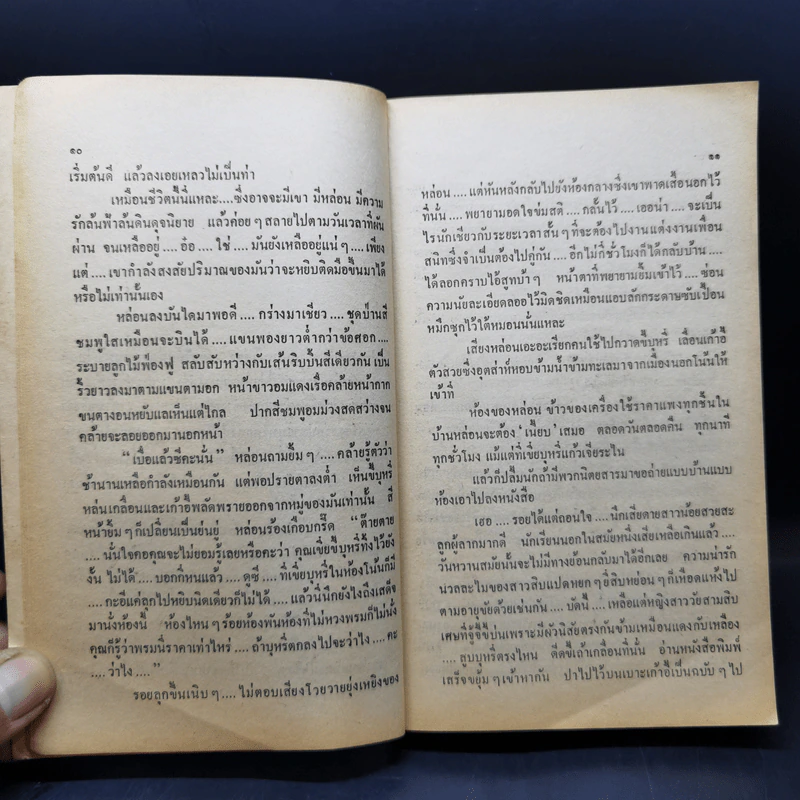 ๑๐
เริ่มต้นดี แล้วลงเอยเหลวไม่เป็นท่า
เหมือนชีวิตนี้นี่แหละ....ซึ่งอาจจะมีเขา มีหล่อน มีความ
รักล้นฟ้าล้นดินดุจนิยาย แล้วค่อยๆ สลายไปตามวันเวลาที่ผัน
ผ่าน จนเหลืออยู่....อ้อ....ใช่....มันยังเหลืออยู่แน่ๆ....เพียง
แต่....เขากำลังสงสัยปริมาณของมันว่าจะหยิบติดมือขึ้นมาได้
หรือไม่เท่านั้นเอง
หล่อนลงบันไดมาพอดี....กร่างมาเชียว....ชุดบ้านสี
ชมพูใสเหมือนจะบินได้....แขนพองยาวต่ำกว่าข้อศอก....
ระบายลูกไม้ฟ่องฟู สลับสับหว่างกับเส้นริบบิ้นสีเดียวกัน เป็น
ริ้วยาวลงมาตามแขนตามอก หน้าขาวอมแดงเรื่อคล้ายหน้ากาก
ขนตางอนหยับแลเห็นแต่ไกล ปากสีชมพูอมม่วงสดสว่างจน
คล้ายจะลอยออกมานอกหน้า
“เบื่อแล้วซีคะนั่น” หล่อนถามยิ้มๆ....คล้ายรู้ตัวว่า
ช้านานเหลือกำลังเหมือนกัน แต่พอปรายตาลงต่ำ เห็นขี้บุหรี่
หล่นเกลื่อนและเก้าอี้พลัดพรายออกจากหมู่ของมันเท่านั้น สี
หน้ายิ้มๆ ก็เปลี่ยนเป็นย่นยู่ หล่อนร้องเกือบกรี๊ด “ต๊ายตาย
....นั่นใจคอคุณจะไม่ยอมรู้เลยหรือคะว่า คุณเขี่ยขี้บุหรี่ทิ้งไว้ยัง
งั้น ไม่ได้....บอกกี่หนแล้ว....ดูซี่....ที่เขี่ยบุหรี่ในห้องโน้นก็มี
....กะอีแค่ลุกไปหยิบนิดเดียวก็ไม่ได้....แล้วนี่นึกยังไงถึงเสด็จ
มานั่งห้องนี้ ห้องไหนๆ ร้อยห้องพันห้องที่ไม่หวงพรมก็ไม่นั่ง
คุณก็รู้ว่าพรมนี่ราคาเท่าไหร่....ถ้าบุหรี่ตกลงไปจะว่าไง....คะ
....ว่าไง....”
รอยลุกขึ้นเนิบๆ....ไม่ตอบเสียงโวยวายยุ่งเหยิงของ
๑๑
หล่อน....แต่หันหลังกลับไปยังห้องกลางซึ่งเขาพาดเสื้อนอกไว้
ที่นั่น....พยายามอดใจข่มสติ....กลั้นไว้....เออน่า....จะเป็น
ไรนักเชียวกับระยะเวลาสั้นๆ ที่จะต้องไปงานแต่งงานเพื่อน
สนิทซึ่งจำเป็นต้องไปคู่กัน....อีกไม่กี่ชั่วโมงก็ได้กลับบ้าน....
ได้ลอกคราบไอ้สูทบ้าๆ หน้าตาที่พยายามยิ้มเข้าไว้....ซ่อน
ความนัยละเอียดลออไว้มิดชิดเหมือนแอบลักกระดาษซับเปื้อน
หมึกซุกไว้ใต้หมอนนั่นแหละ
เสียงหล่อนเอะอะเรียกคนใช้ไปกวาดขี้บุหรี่ เลื่อนเก้าอี้
ตัวสวยซึ่งอุตส่าห์หอบข้ามน้ำข้ามทะเลมาจากเมืองนอกโน้นให้
เข้าที่
ห้องของหล่อน ข้าวของเครื่องใช้ราคาแพงทุกชิ้นใน
บ้านหล่อนจะต้อง ‘เนี้ยบ’ เสมอ ตลอดวันตลอดคืน ทุกนาที
ทุกชั่วโมง แม้แต่ที่เขี่ยบุหรี่แก้วเจียระไน
แล้วก็ปลื้มนักถ้ามีพวกนิตยสารมาขอถ่ายแบบบ้านแบบ
ห้องเอาไปลงหนังสือ
เฮอ....รอยได้แต่ถอนใจ....นึกเสียดายสาวน้อยสวยสะ
ลูกผู้ลากมากดี นักเรียนนอกในสมัยหนึ่งเสียเหลือเกินแล้ว....
วันหวานสมัยนั้นจะไม่มีทางย้อนกลับมาได้อีกเลย ความน่ารัก
นวลละไมของสาวสิบแปดหยกๆ ยี่สิบหย่อนๆ ก็เหือดแห้งไป
ตามอายุขัยด้วยเช่นกัน....บัดนี้....เหลือแต่หญิงสาววัยสามสิบ
เศษที่จู้จี้ขี้บ่นเพราะมีผัวนิสัยตรงกันข้ามเหมือนแดงกับเหลือง
....สูบบุหรี่ตรงไหน ดีดขี้เถ้าเกลื่อนที่นั่น อ่านหนังสือพิมพ์
เสร็จขยุ้มๆ เข้าหากัน ปาไปไว้บนเบาะเก้าอี้เป็นฉบับๆ ไป